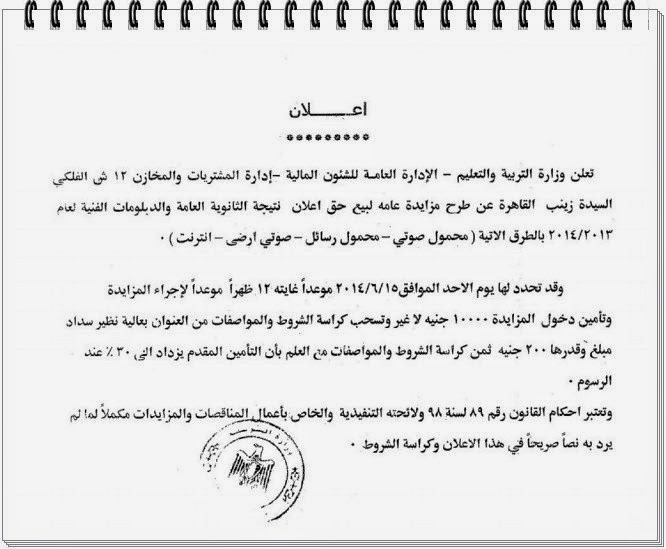 اعــــــــلان
*********
تعلن وزارة التربية والتعليم – الإدارة العامـة للشئون المالية –إدارة المشتريات والمخازن ١٢ ش الفلكي
السيدة زينب القاهرة عن طرح مزايدة عامه لبيع حق اعلان نتيجة الثانوية العامة والدبلومات الفنية لعام
٢٠١٤/٢٠١٣ بالطرق الاتية ( محمول صوتي – محمول رسائل – صوتي ارضى – انترنت ) ٠
وقد تحدد لها يوم الاحد الموافق٢٠١٤/٦/١٥ موعداً غايته ١٢ ظهراً موعداً لإجراء المزايدة
وتأمين دخول المزايدة ١٠٠٠٠ جنيه لا غير وتسحب كراسة الشروط والمواصفات من العنوان بعالية نظير سداد
مبلغ وقدرها ٢٠٠ جنيه ثمن كراسة الشروط والمواصفات مع العلم بأن التأمين المقدم يزداد الى ٣٠ ٪ عند
الرسوم ٠
وتعتبر احكام القانون رقم ٨٩ لسنة ٩٨ ولائحته التنفيذية والخاص بأعمال المناقصات والمزايدات مكملاً لما لم
يرد به نصاً صريحاً في هذا الاعلان وكراسة الشروط ٠